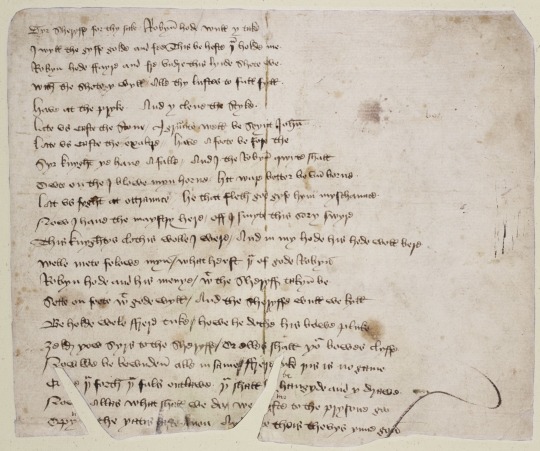 Syr sheryffe for thy sake Robyn hode wull y take
I wyll the gyffe golde and fee This be heste þu holde me
Robyn hode ffayre and fre vndre this lynde shote we
with the shote y wyll Alle thy lustes to full fyll
Have at the pryke And y cleue the styke
late vs caste the stone I graunte well be seynt John
late vs caste the exaltre have a foote be fore the
Syr knyght ye haue a falle And I the Robyn qwyte shall
Owte on the I blowe myn horne hit ware better be vn borne
lat vs fyght at ottraunce he that fleth god gyfe hym myschaunce
Now I haue the maystry here off I smyte this sory swyre
This knyghtys clothis wolle I were And in my hode his hede woll bere
welle mete felowe myn what herst þu of gode Robyn
Robyn hode and his menye wt the sheryff takyn be
Sette on foote wt gode wyll And the sheryffe wull we kyll
Be holde wele ffrere tuke howe he dothe his bowe pluke
Ȝeld yow syrs to the sheryffe Or elles shall yor bowes clyffe
Now we be bownden alle in same ffrere uke þis is no game
þu forth þu fals outlawe þu shall hangyde and y drawe
Now allas what shall we doo we to the prysone goo
the yatis faste anon thevys ynne gon